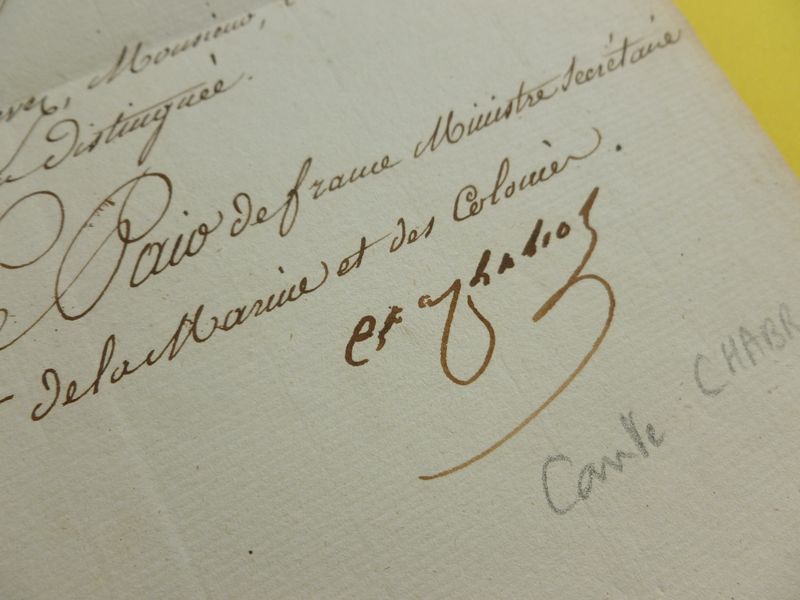 Monsieur,
distinguée.
Pair de france Ministre Secrétaire
de la Marine et des Colonies.
CHABR